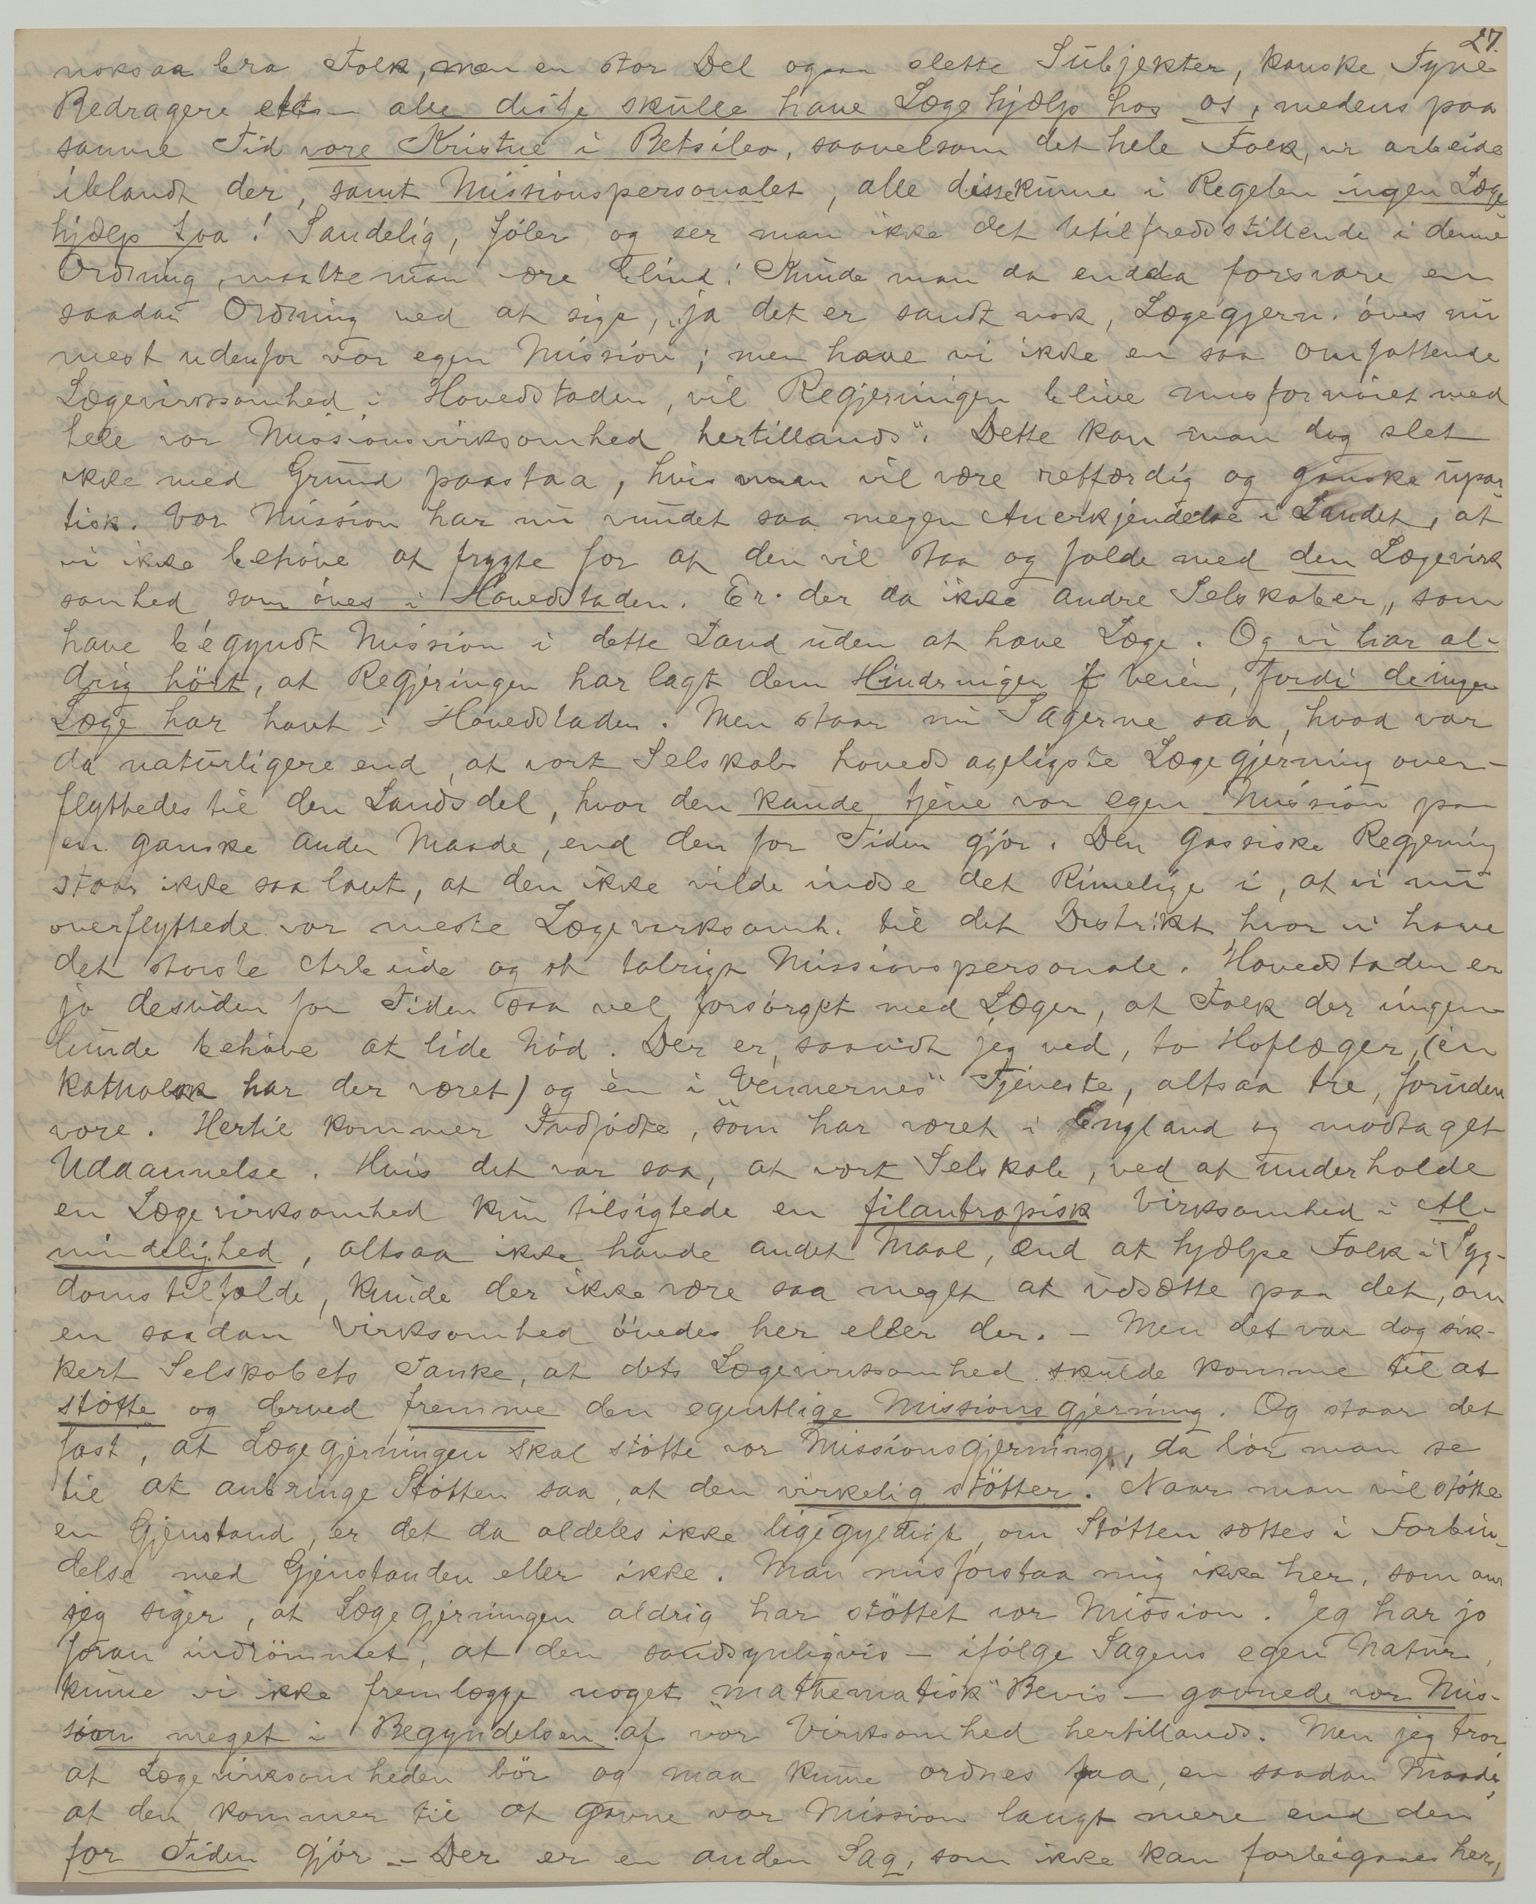 27.
noksaa bra Folk, men en stor Del ogsaa slette Subjekter, kanske Tyve
Bedragere etc – alle disse skulle have Lægehjælp hos os, medens paa
samme Tid vore Kristne i Betsileo, saavelsom det hele Folk, vi arbeide
iblandt der, samt Missionspersonalet, alle disse kunne i Regelen ingen Læge
hjælp faa! Sandelig, föler og ser man ikke det utilfredsstillende i denne
Ordning, maatte man være blind! Kunde man da endda forsvare en
saadan Ordning ved at sige, „ja det er sandt nok, Lægegjern. öves nu
mest udenfor vor egen Mission; men have vi ikke en saa omfattende
Lægevirksomhed i Hovedstaden, vil Regjeringen blive misfornöiet med
hele vor Missionsvirksomhed hertillands“. Dette kan man dog slet
ikke med Grund paastaa, hvis man vil være retfærdig og ganske upar
tisk. Vor Mission har nu vundet saa megen Anerkjendelse i Landet, at
vi ikke behöve at frygte for at den vil staa og falde med den Lægevirk
somhed som öves i Hovedstaden. Er der da ikke andre Selskaber, som
have begyndt Mission i dette Land uden at have Læge. Og vi har al-
drig hört, at Regjeringen har lagt dem Hindringer i Veien, fordi de ingen
Læge har havt i Hovedstaden. Men staar nu Sagerne saa, hvad var
da naturligere end, at vort Selskab hovedsageligste Lægegjerning over-
flyttedes til den Landsdel, hvor den kunde tjene vor egen Mission paa
en ganske anden Maade, end den for Tiden gjör. Den gassiske Regjering
staar ikke saa lavt, at den ikke vilde indse det Rimelige i, at vi nu
overflyttede vor meste Lægevirksomh. til det Distrikt hvor vi have
det störste Arbeide og et talrigt Missionspersonale. Hovedstaden er
jo desuden for Tiden saa vel forsörget med Læger, at Folk der ingen-
lunde behöve at lide Nöd. Der er, saavidt jeg ved, to Hoflæger, (en
katholsk har der været) og èn i „Vennernes“ Tjeneste, altsaa tre, foruden
vore. Hertil kommer Indfödte, som har været i England og modtaget
Uddannelse. Hvis det var saa, at vort Selskab, ved at underholde
en Lægevirksomhed kun tilsigtede en filantropisk Virksomhed i Al-
mindelighed, altsaa ikke havde andet Maal, end at hjælpe Folk i Syg-
domstilfælde, kunde der ikke være saa meget at udsætte paa det, om
en saadan Virksomhed övedes her eller der. – Men det var dog sik-
kert Selskabets Tanke, at dets Lægevirksomhed skulde komme til at
stötte og derved fremme den egentlige Missionsgjerning. Og staar det
fast, at Lægegjerningen skal stötte vor Missionsgjerning, da bör man se
til at anbringe Stötten saa, at den virkelig stötter. Naar man vil stötte
en Gjenstand, er det da aldeles ikke ligegyldigt, om Stötten sættes i Forbin-
delse med Gjenstanden eller ikke. Man misforstaa mig ikke her, som om
jeg siger, at Lægegjerningen aldrig har stöttet vor Mission. Jeg har jo
foran indrömmet, at den sandsynligvis – ifölge Sagens egen Natur,
kunne vi ikke fremlægge noget „mathematisk“ Bevis – gavnede vor Mis-
sion meget i Begyndelsen af vor Virksomhed hertillands. Men jeg tror
at Lægevirksomheden bör og maa kunne ordnes paa en saadan Maade,
at den kommer til at gavne vor Mission langt mere end den
for Tiden gjör. – Der er en anden Sag, som ikke kan forbigaaes her,